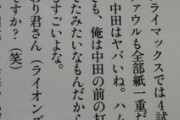 ライマックスでは４試
ァウルも全部紙一重だ
中田はヤバいね。ハム
ても、俺は中田の前の打
たみたいなもんだから
すごいよな。
わり君さん（ライオンズ
ですか？（笑）